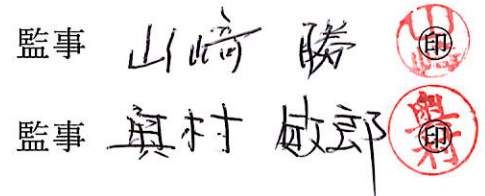 監事 山﨑 勝 ㊞
監事 奥村 敏郎 ㊞